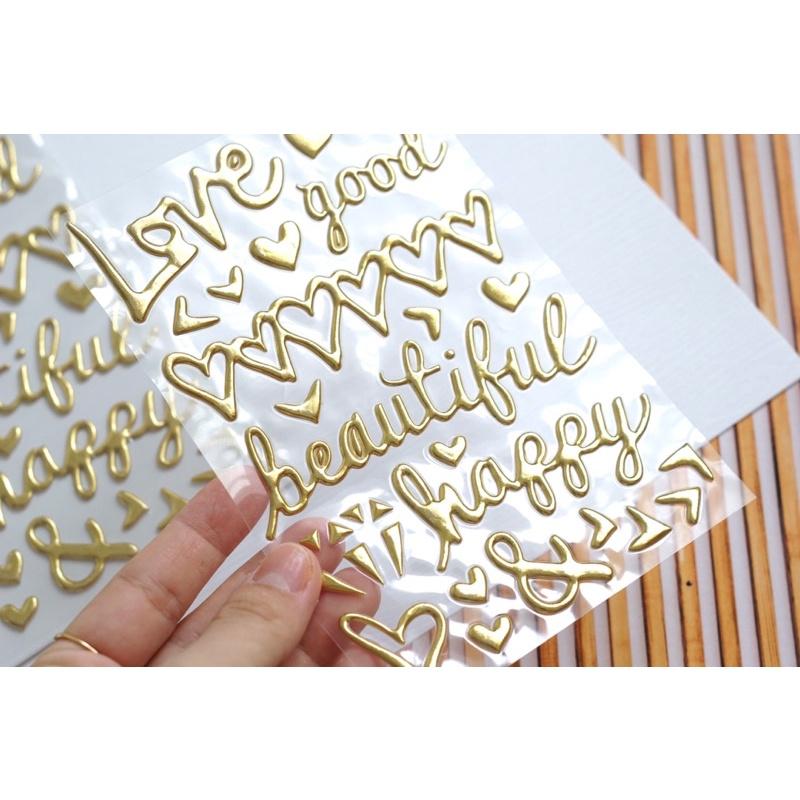 Love
good
beautiful
happy
&
tiful
happy
&